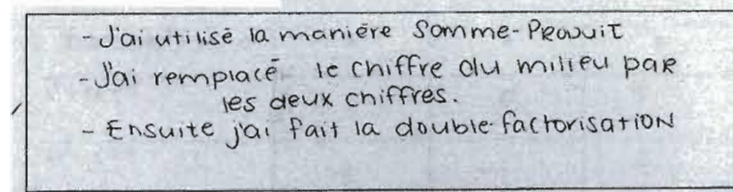 - J'ai utilisé la maniére Somme-Produit
- J'ai remplacé le chiffre du milieu par
les deux chiffres.
- Ensuite j'ai fait la double factorisation